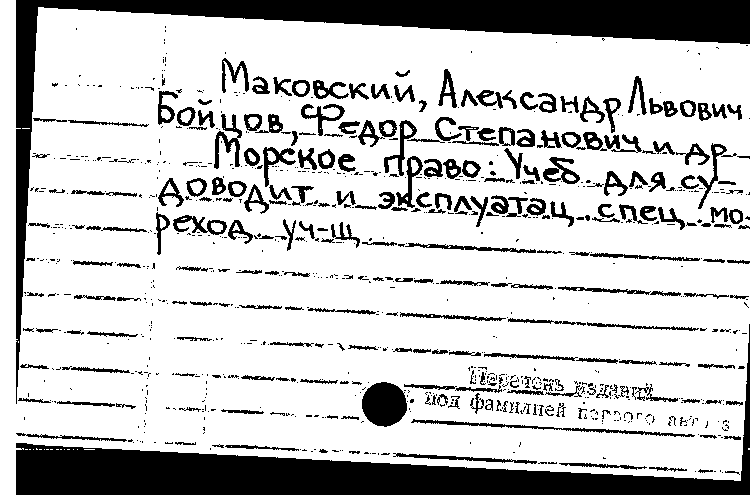 Маковский, Александр Львович
Бойцов, Федор Степанович и др
Морское право: Учеб. для су-
доводит и эксплуатац. спец. мо-
реход. уч-щ.
Перечень изданий
под фамилией первого